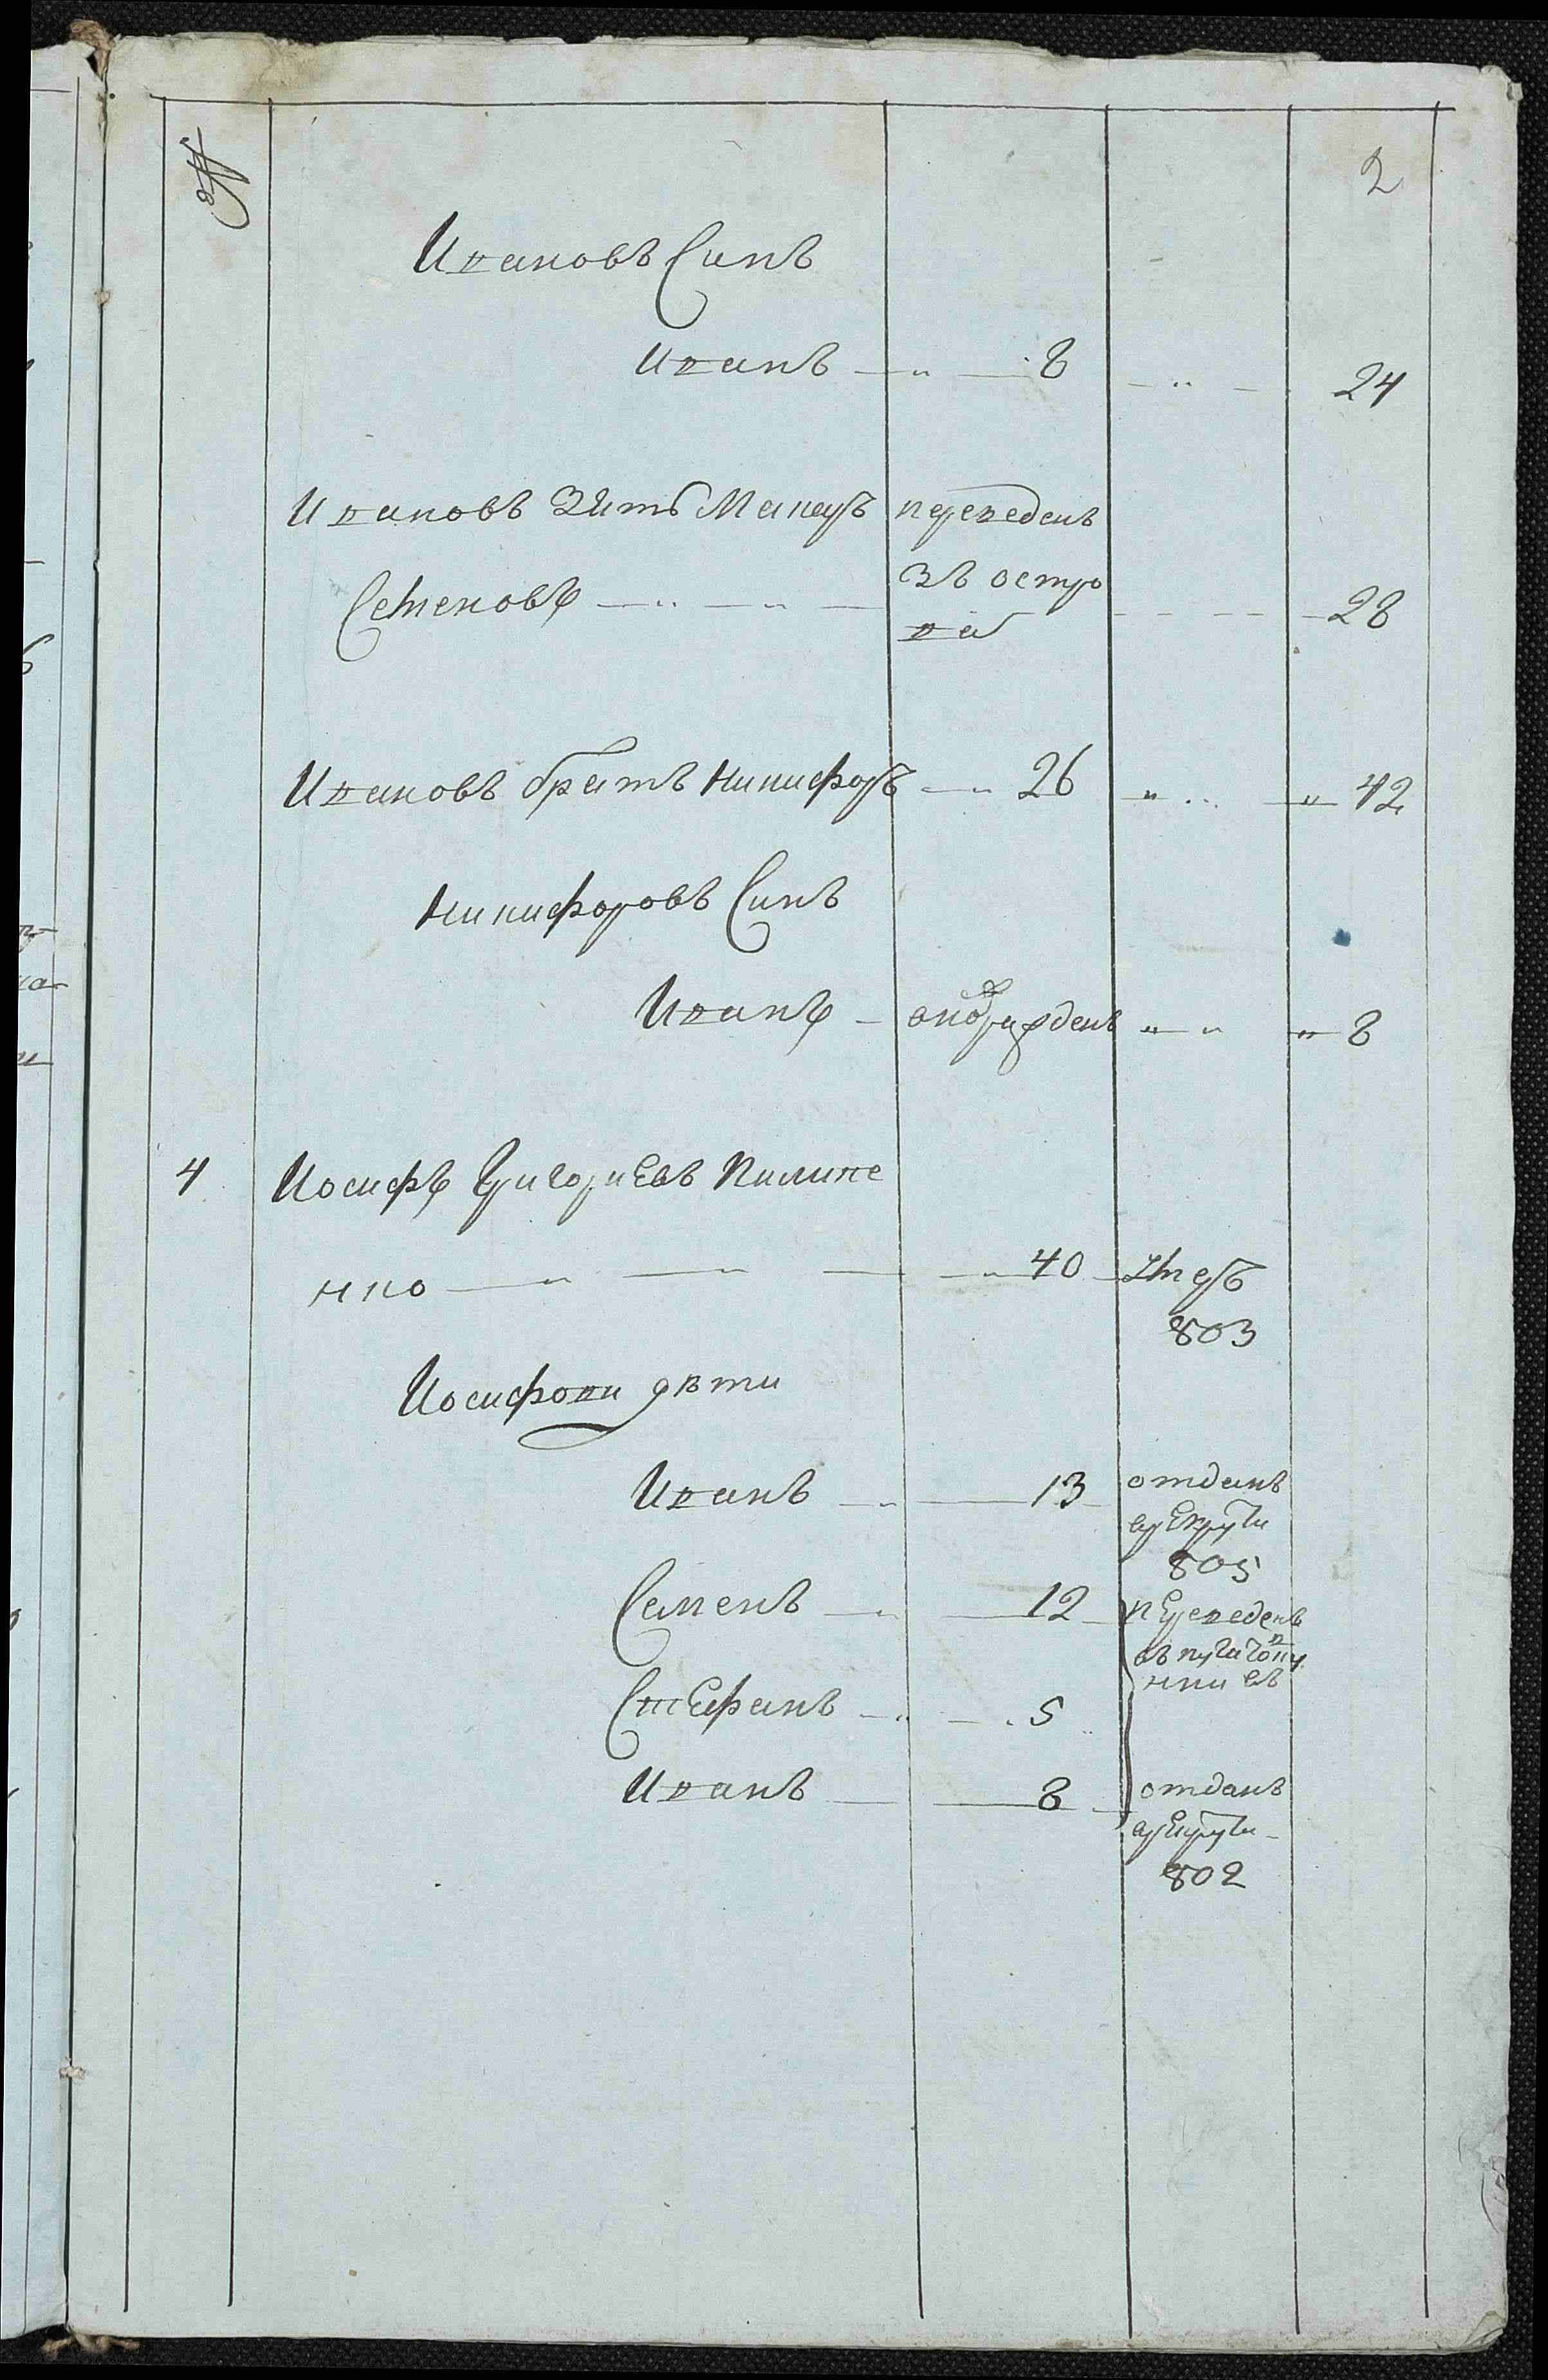 №
2
Ивановъ Синъ
Иванъ 8 24
Ивановъ Зять Макаръ переведенъ
Семеновъ зъ остро 28
ва
Ивановъ братъ Никифоръ 26 42
Никифоровъ Синъ
Иванъ 8
4 Иосифъ Григориевъ Пилипе
нко 40 умеръ
803
Иосифови дѣти
Иванъ 13 отданъ
врекрути
805
Семенъ 12 переведенъ
въ
Стефанъ 5
Иванъ 8 отданъ
врекрути
802